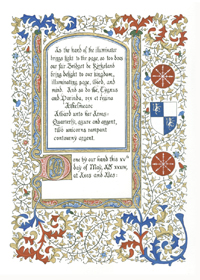 As the hand of the illuminator
brings light to the page, so too does
our fair Bridget de
bring delight to our kingdom,
illuminating page, mind, and
mind. And so do the, Cygnus
and Dorinda, rex et regina
Æthelmearc
Award unto her Arms:
Quarterly, azure and argent,
two unicorns rampant
contourny argent.
Done by our hand this
day of May, AS XXXIX,
at